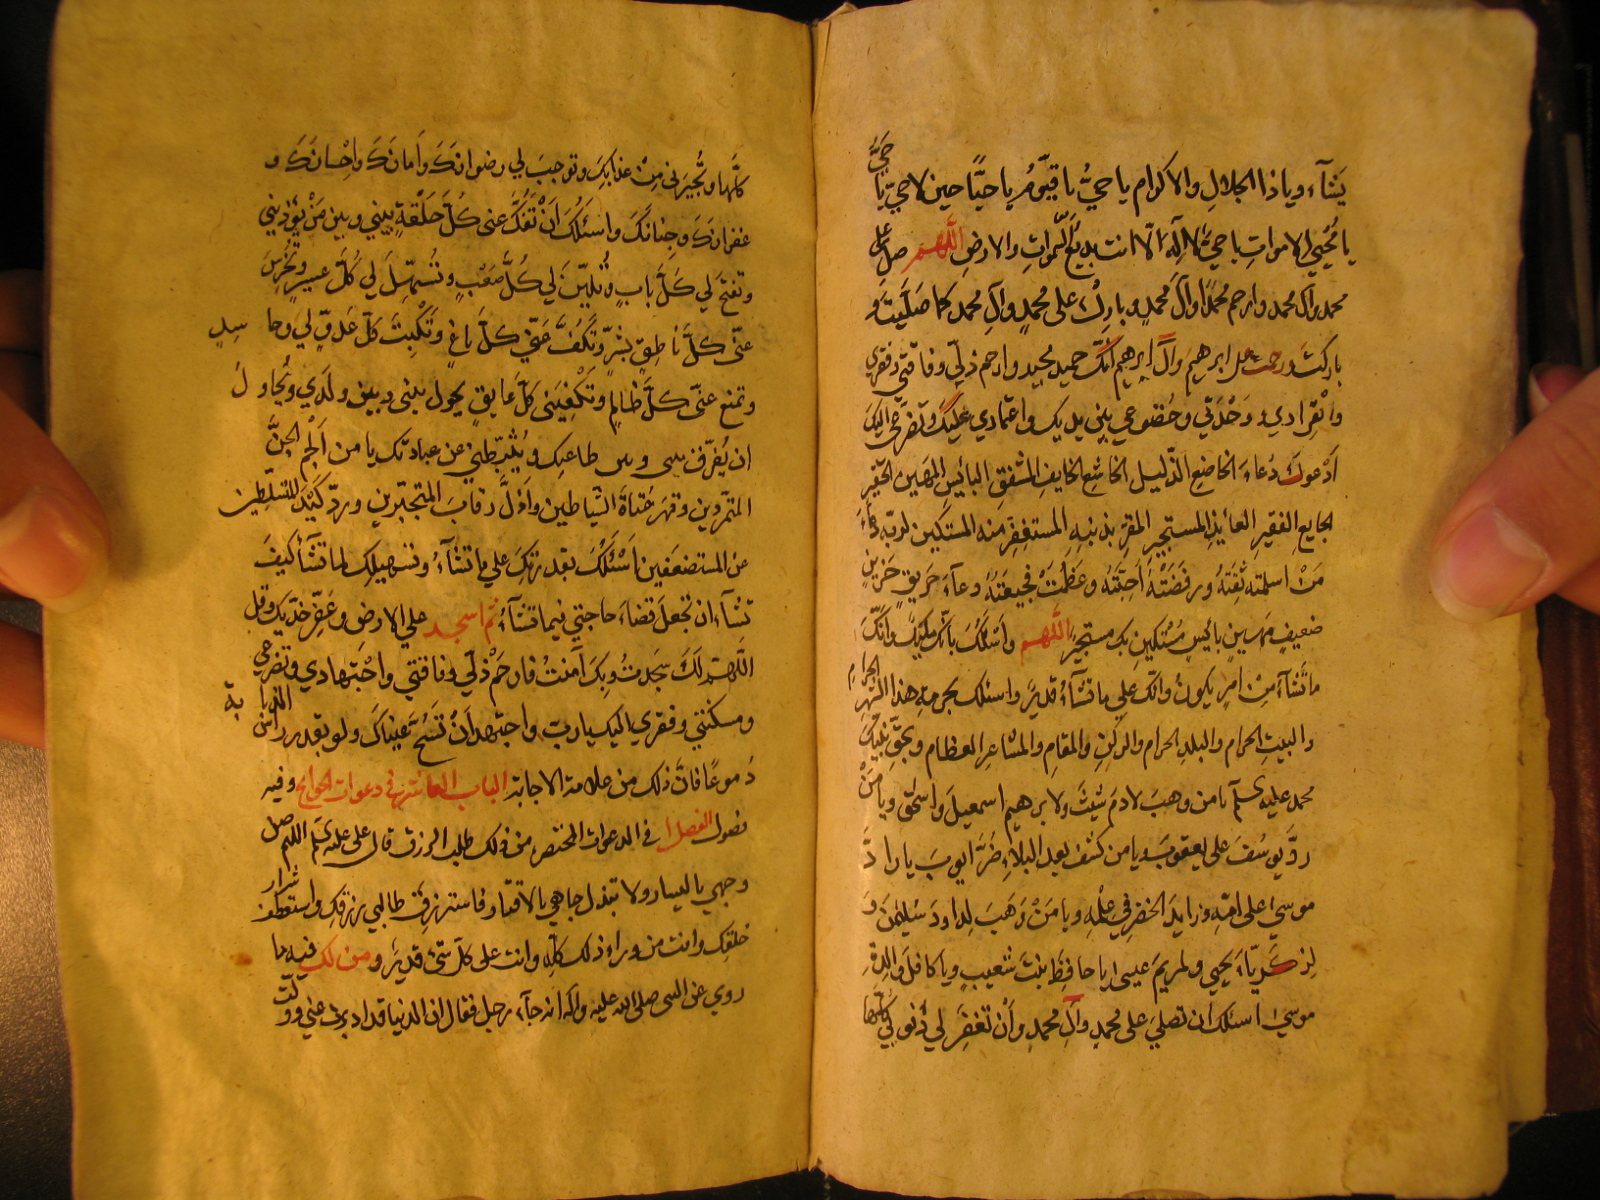 يشآء وياذا الجلال والاكرام ياحيُّ ياقيّومُ ياحيًّا حين لاحيّ يا حيُّ
يا مُحْيِيَ الاموات ياحيُّ لا اِلٰهَ الّا انت بديعُ السّمواتِ والارضِ اللّهم صل على
محمد وآل محمد وارحم محمدًا وآلَ محمدٍ وبارك على محمدٍ وآلِ محمد كما صلّيتَ و
باركتَ ورحمت على ابرهيمَ وآلِ ابرهيم انّك حميد مجيد وارحم ذلّي وفاقتي وفقري
وانْفِرادي وَوَحْدَتي وخضوعي بين يديك واعتمادي عليك وتضرعي اليك
اَدْعوكَ دُعاءَ الخاضع الذّليل الخاشع الخايف المشفق البائس المَهين الحقير
الجايع الفقير العائذ المستجير المقرّ بذنبهِ المستغفر منه المستكين لربّه دُعآءَ
مَنْ اسلمته ثِقَتُهُ ورفَضَتْهُ اَحِبّتُه وعَظُمَتْ فجيعَتُهُ دعآءَ حَرِيقٍ حَزينٍ
ضعيفٍ مَهينٍ بائسٍ مُسْتَكينٍ بك مستجيرٍ اللّهم وأَسْئلكَ بانّك مليكٌ وانّك
ما تَشآءُ مِنْ امرٍ يكونُ وانّك على ما تشآءُ قديرٌ واسئلك بحرمةِ هذا الشهر الحرام
والبيتِ الحرام والبلدِ الحرام والركنِ والمقامِ والمشاعر العظام وبحقّ نبيّك
محمد عليه السلم يا من وهبَ لادم شيثَ ولابرهيم اسمعيلَ واسحق ويا مَنْ
ردّ يوسُفَ على يعقوبَ ويا من كشف بعد البلآءِ ضُرَّ ايوبَ يا رادَّ
موسىٰ على امّهِ وزايدَ الخضرِ في عِلْمِهِ ويا مَنْ وَهَبَ لداودَ سُليمٰنَ وَ
لِزكَريّآءَ يحيى ولمريمَ عيسى يا حافِظَ بنتَ شعيبٍ ويا كافلَ وَلَدِ امِّ
موسىٰ اسئلك ان تصلّيَ على محمدٍ وآلِ محمدٍ وأن تغفِرَ لي ذُنوبي كُلّها
كلّها وتُجيرَني مِنْ عذابِكَ وتوجبَ لي رضوانَكَ وأمانَكَ واِحْسانَكَ و
غفرانَكَ وجِنانَكَ واسئَلُكَ اَنْ تَفُكَّ عنى كلَّ حَلْقَةٍ بيني وبين مَنْ يؤذيني
وتفتحَ لي كلَّ بابٍ وتُلَيِّنَ لي كُلَّ صَعْبٍ وتُسَهِّلَ لي كُلَّ عسيرٍ وتُخْرِسَ
عنّي كلَّ ناطقٍ بشرٍّ وتَكُفَّ عنّي كلَّ باغٍ وتَكْبِتَ كلَّ عَدوٍّ لي وحاسدٍ
وتمنع عنّي كلَّ ظالمٍ وتَكْفِيَني كلَّ عايقٍ يحول بيني وبين ولَدي ويُحاولُ
ان يُفَرّقَ بيني وبين طاعتِك ويُثَبِّطَني عن عبادتك يا من اَلْجَمَ الجنَّ
المتمرّدين وقهر عُتاةَ الشّياطين واَذَلَّ رقابَ المتجبّرين وردّ كَيْدَ المتسلّطين
عن المستضعفين اَسْئَلُكَ بقدرتِكَ على ما تشآءُ وتسهيلِك لما تشآءُ كيفَ
تشآءُ ان تجعلَ قضاءَ حاجتي فيما تشآءُ ثم اسجد على الارض وعَفِّر خَدّيكَ وقل
اللّهمّ لكَ سَجَدتُ وبكَ آمنتُ فارحَمْ ذلّي وفاقتي واجْتهادي وتضرعي
ومسكنتي وفقري اليك يا ربّ واجتهد اَنْ تَسُحَّ عيناك ولو بقدر راس الذبابة
دُموعًا فانَّ ذلك من علامة الاجابة الباب العاشر في دعوات الحوائج وفيه
فصول الفصل ١ في الدعوات المختصر من ذلك طلب الرزق قال على عليه السلم اللهم صن
وجهي باليسار ولا تبذل جاهي بالاقتار فاسترزق طالبي رزقك واستعطف شرار
خلقك وانت من وراء ذلك كلّه وانت على كلّ شئ قديرٌ ومن ذلك فيه ما
روي عن النبى صلى الله عليه وآله انه جآءه رجل فقال ان الدنيا قد ادبرت عني وولّت